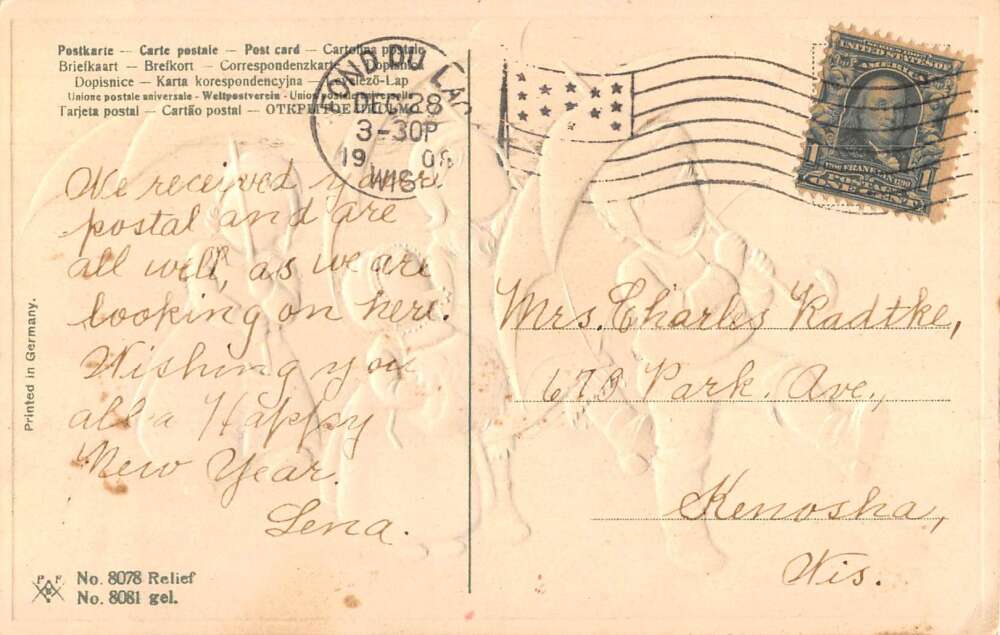 Postkarte — Carte postale — Post card — Cartolina postale
Briefkaart — Brefkort — Correspondenzkarte — Dopisnica
Dopisnice — Karta korespondencyjna — Levelező-Lap
Unione postale universale - Weltpostverein - Union postale universelle
Tarjeta postal — Cartão postal — ОТКРЫТОЕ ПИСЬМО
FOND DU LAC
DEC 28
3-30P
1908
WIS.
UNITED STATES OF
AMERICA
1 FRANKLIN 1
POSTAGE
ONE CENT
We received your
postal and are
all well, as we are
looking on here.
Wishing you
all a Happy
New Year.
Lena.
Mrs. Charles Radtke,
673 Park. Ave.,
Kenosha,
Wis.
Printed in Germany.
P. F. B
No. 8078 Relief
No. 8081 gel.